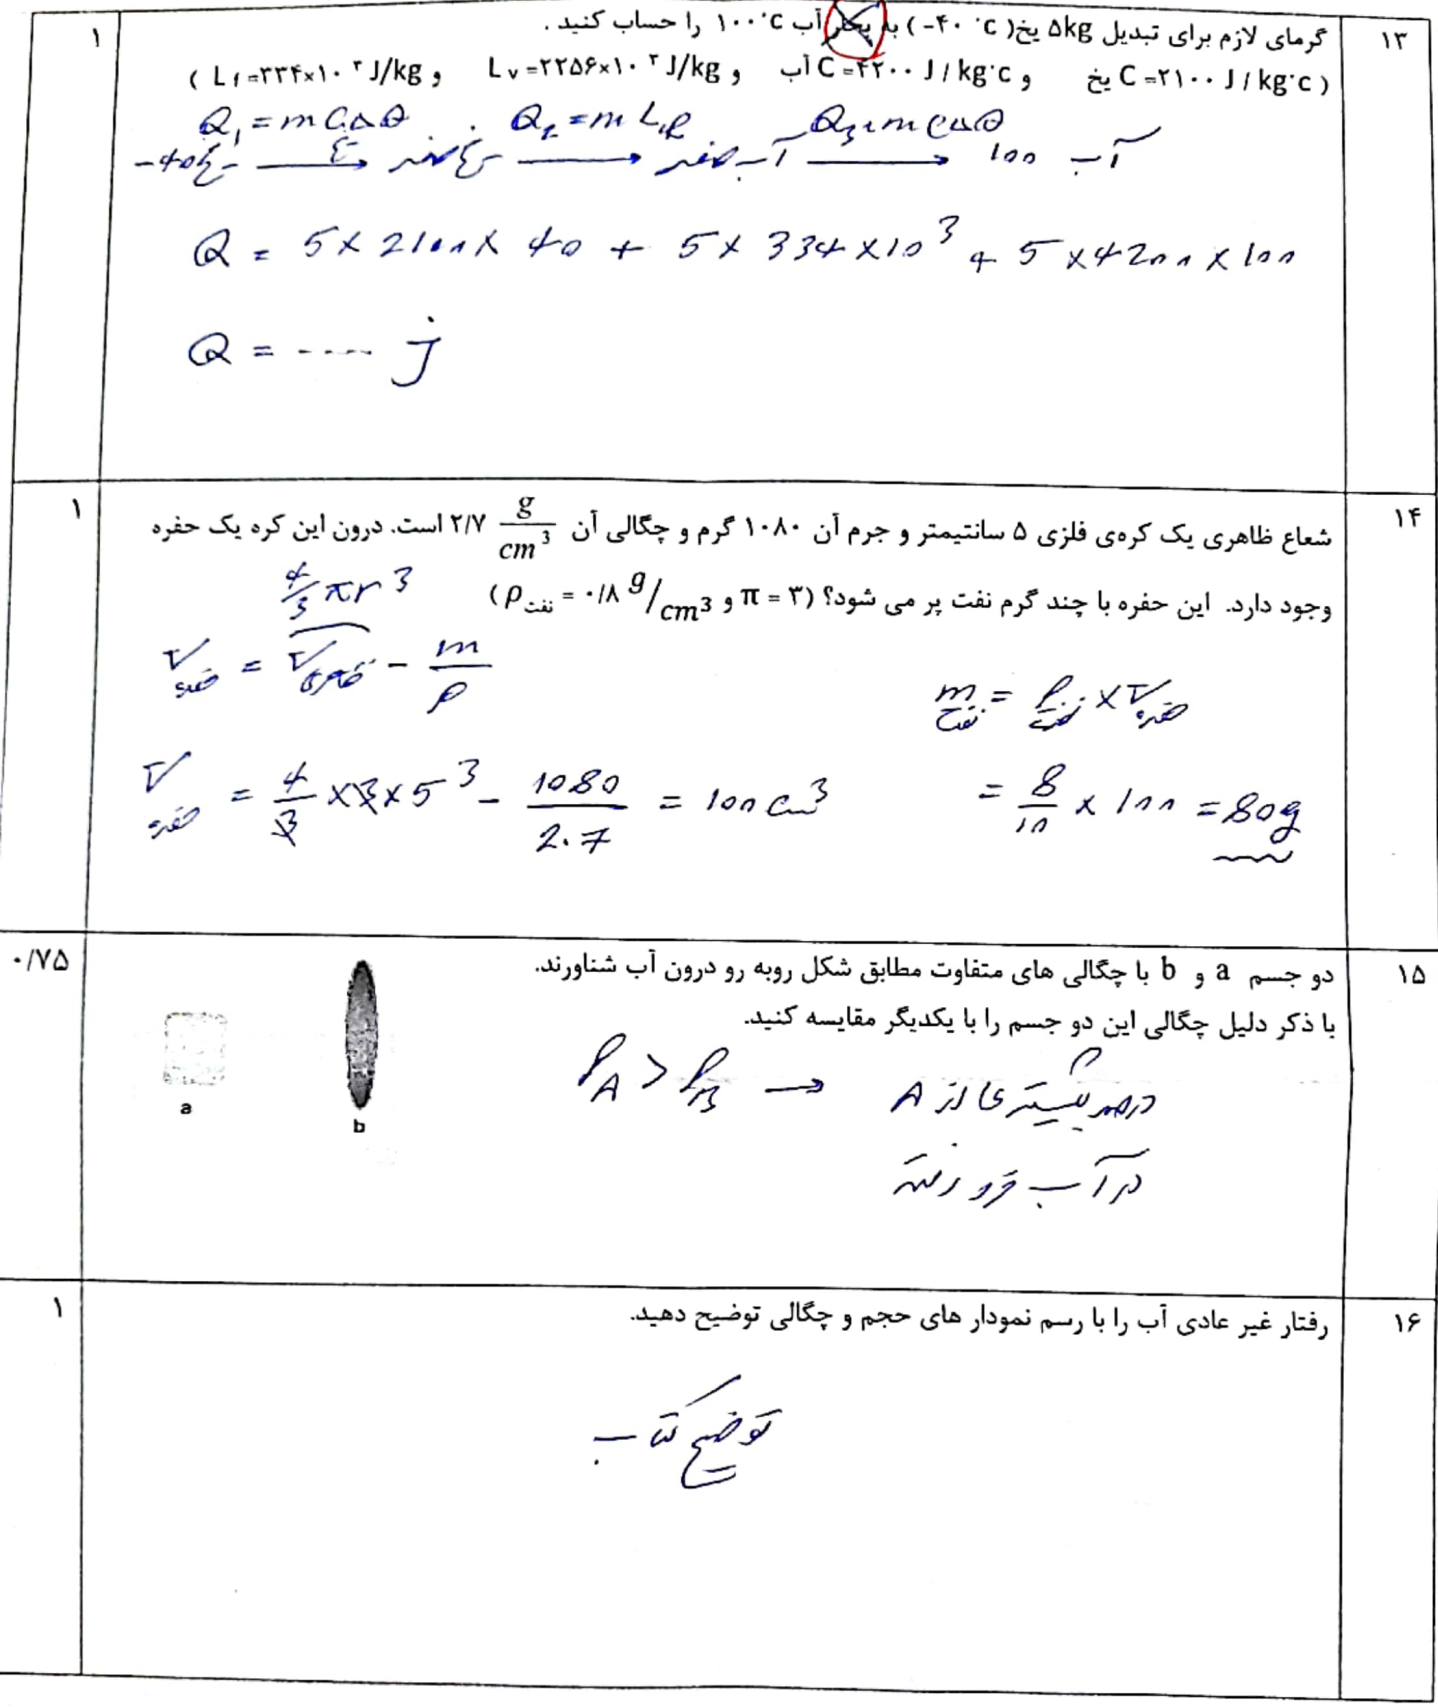 ۱۳
گرمای لازم برای تبدیل ۵kg یخ( ۴۰ °c-) به بخار آب ۱۰۰°c را حساب کنید . ۱
( یخ C =۲۱۰۰ J / kg°c و آب C=۴۲۰۰ J / kg°c و L v =۲۲۵۶×۱۰ ۳ J/kg و L f =۳۳۴×۱۰ ۳ J/kg )
Q₁ = m C Δθ Q₂ = m L_f Q₃ = m c Δθ
-40 یخ → یخ صفر → آب صفر → 100 آب
Q = 5 × 2100 × 40 + 5 × 334 × 10³ + 5 × 4200 × 100
Q = ---- j
۱۴
شعاع ظاهری یک کره‌ی فلزی ۵ سانتیمتر و جرم آن ۱۰۸۰ گرم و چگالی آن ۲/۷ g/cm³ است. درون این کره یک حفره ۱
وجود دارد. این حفره با چند گرم نفت پر می شود؟ (π = ۳ و ρنفت = ۰/۸ g/cm³)
4/3 πr³
V حفره = V ظاهری - m/ρ
m نفت = ρ نفت × V حفره
V حفره = 4/3 × 3 × 5³ - 1080/2.7 = 100 cm³
= 8/10 × 100 = 80g
۱۵
دو جسم a و b با چگالی های متفاوت مطابق شکل روبه رو درون آب شناورند. ۰/۷۵
با ذکر دلیل چگالی این دو جسم را با یکدیگر مقایسه کنید.
a
b
ρA > ρB → درصد بیشتری از A
در آب فرو رفته
۱۶
رفتار غیر عادی آب را با رسم نمودار های حجم و چگالی توضیح دهید. ۱
توضیح کتاب